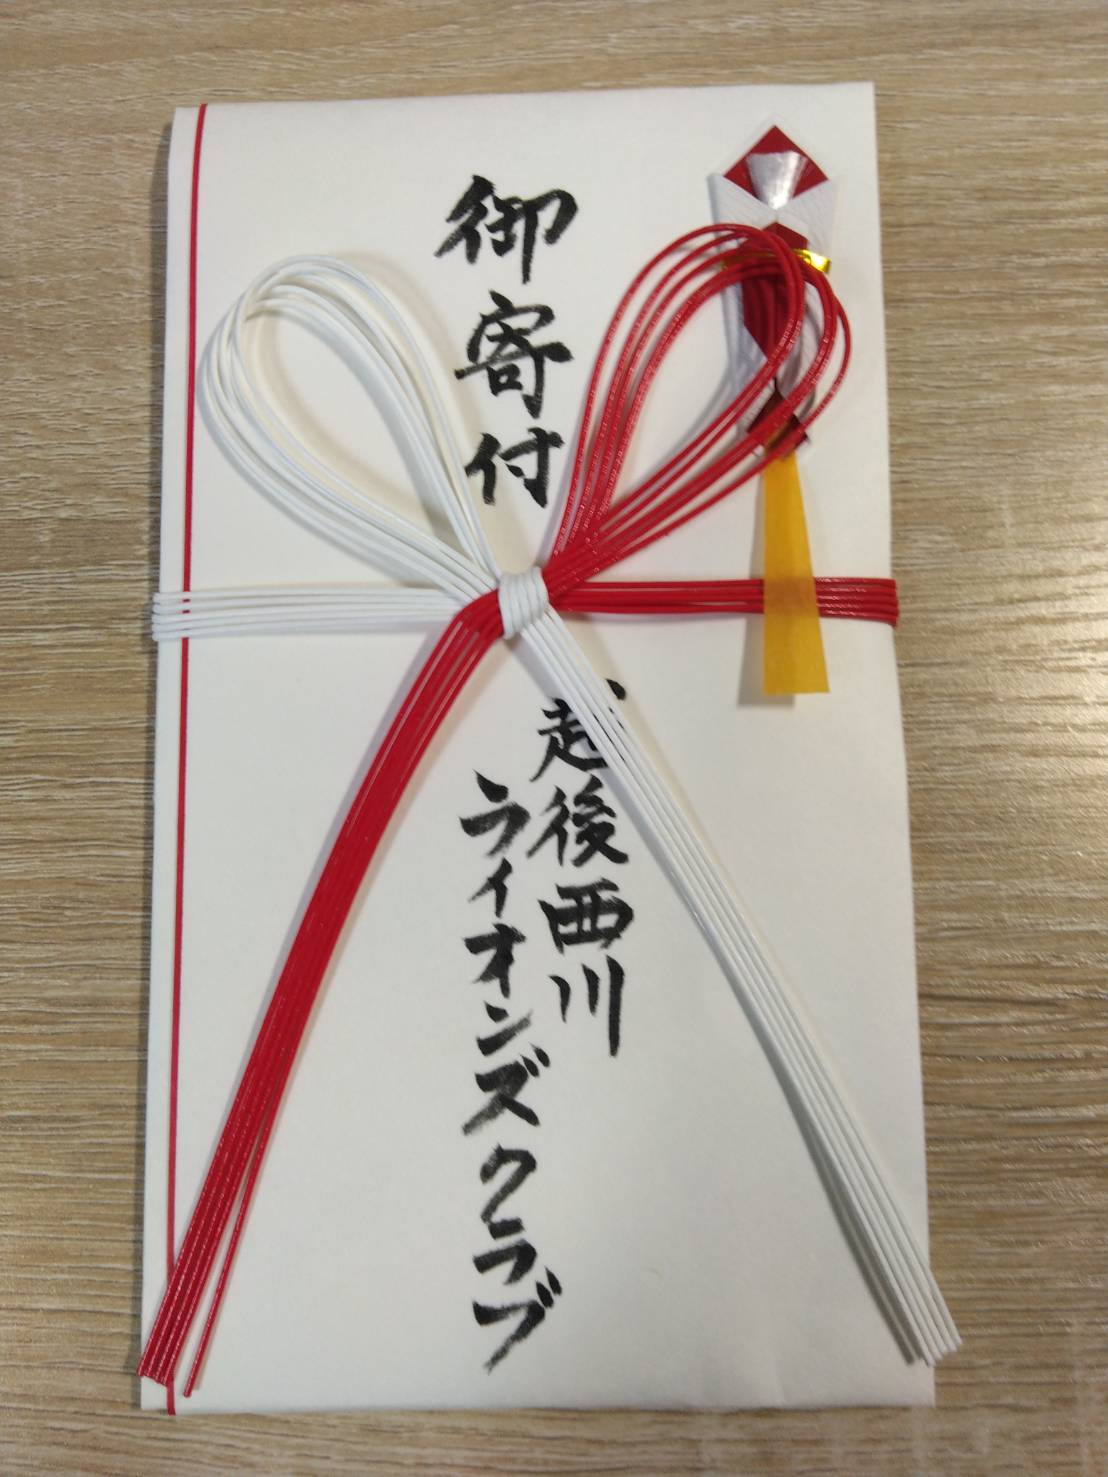 御寄付
越後西川
ライオンズクラブ